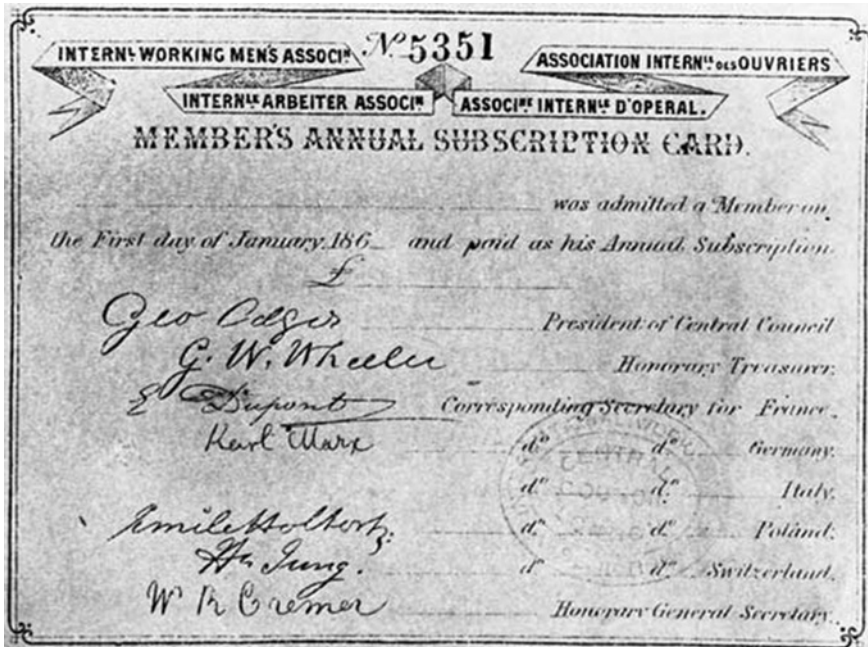 Nº 5351
INTERNL WORKING MEN'S ASSOCIN
ASSOCIATION INTERNLE DES OUVRIERS
INTERNLE ARBEITER ASSOCIN
ASSOCINE INTERNLE D'OPERAL.
MEMBER'S ANNUAL SUBSCRIPTION CARD.
was admitted a Member on
the First day of January 186 and paid as his Annual Subscription
£
Geo Odger President of Central Council
G. W. Wheeler Honorary Treasurer.
E Dupont Corresponding Secretary for France.
Karl Marx do do Germany.
do do Italy.
Emile Holtorp do do Poland.
H Jung. do do Switzerland.
W R Cremer Honorary General Secretary.
CENTRAL